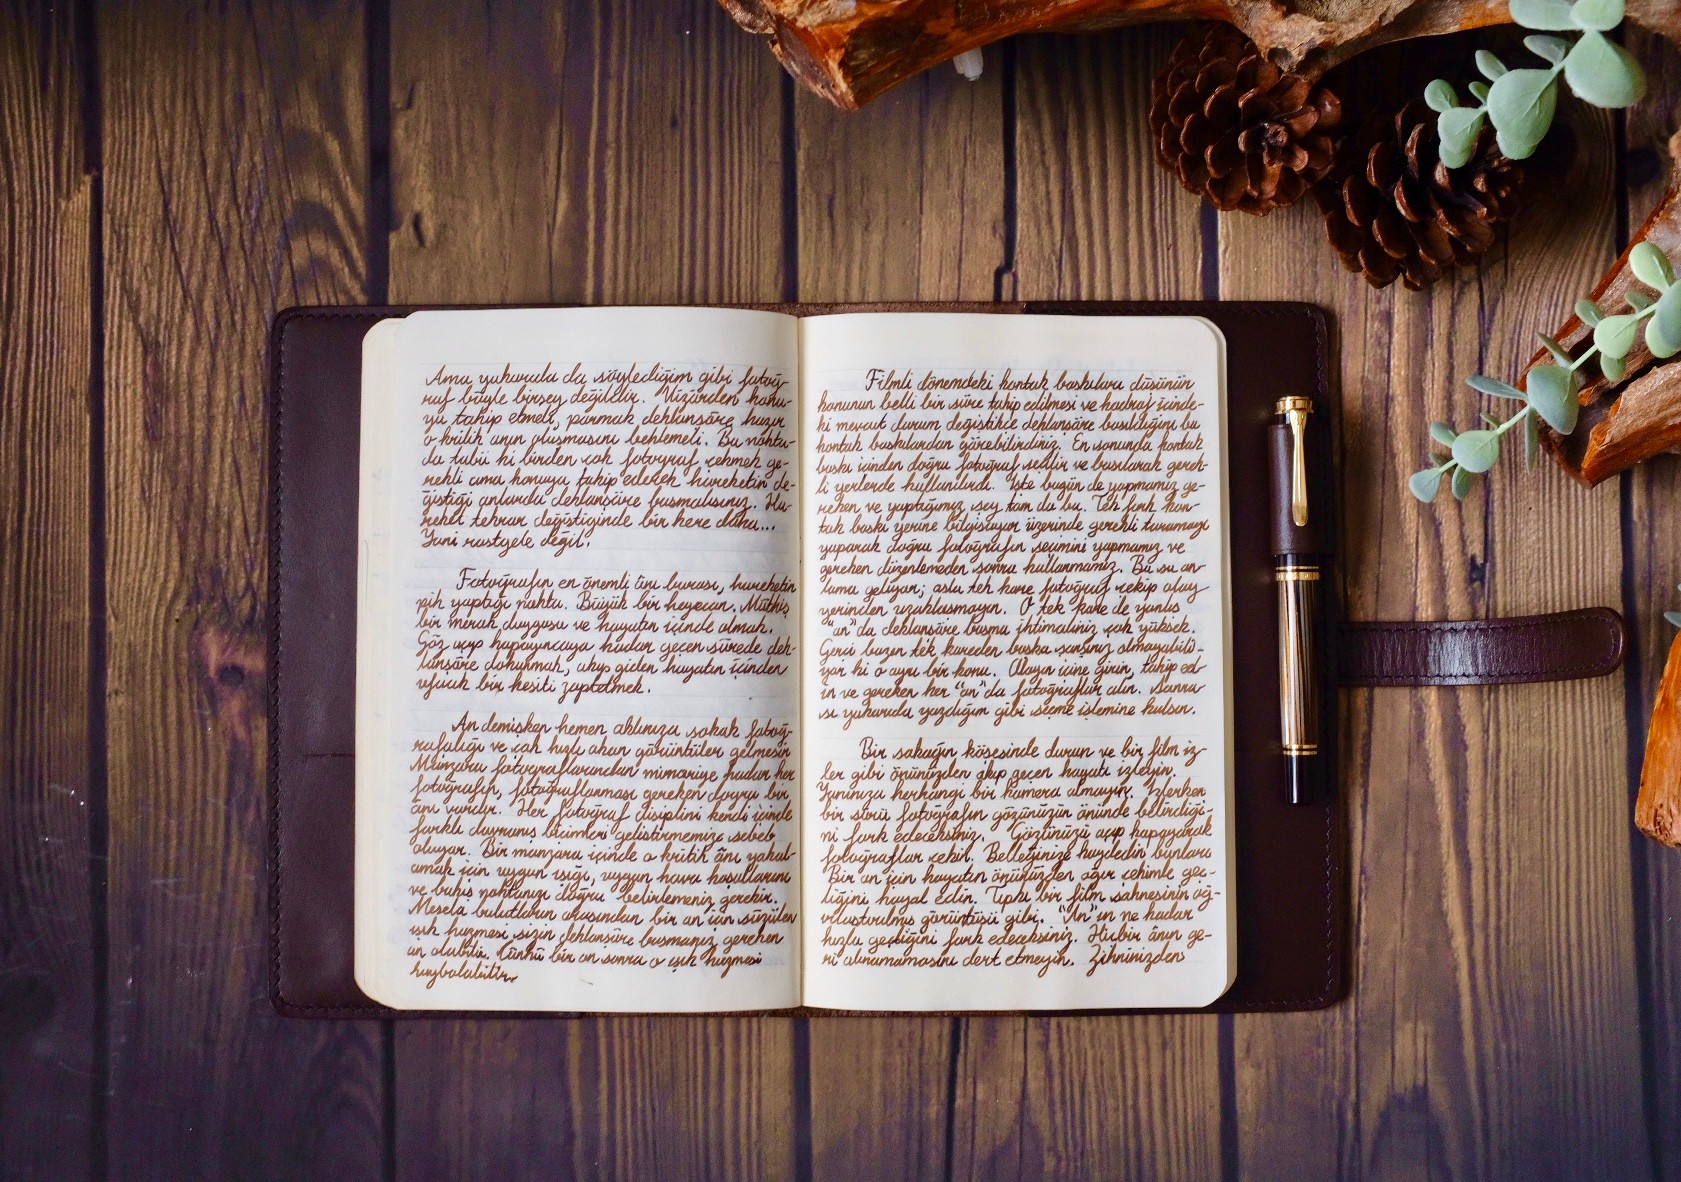 Ama yukarıda da söylediğim gibi fotoğ-
raf böyle birşey değildir. Vizörden konu-
yu takip etmeli, parmak deklanşöre hazır
o kritik anın oluşmasını beklemeli. Bu nokta-
da tabii ki birden çok fotoğraf çekmek ge-
rekli ama konuyu takip ederek hareketin de-
ğiştiği anlarda deklanşöre basmalısınız. Ha-
reket tekrar değiştiğinde bir kere daha...
Yani rastgele değil.
Fotoğrafın en önemli anı burası, hareketin
pik yaptığı nokta. Büyük bir heyecan. Müthiş
bir merak duygusu ve hayatın içinde olmak.
Göz açıp kapayıncaya kadar geçen sürede dek-
lanşöre dokunmak, akıp giden hayatın içinden
ufacık bir kesiti zaptetmek.
An demişken hemen aklınıza sokak fotoğ-
rafcılığı ve çok hızlı akan görüntüler gelmesin
Manzara fotograflarından mimariye kadar her
fotoğrafın, fotoğraflanması gereken doğru bir
ânı vardır. Her fotoğraf disiplini kendi içinde
farklı davranış biçimleri geliştirmemize sebeb
oluyor. Bir manzara içinde o kritik ânı yakal-
amak için uygun ışığı, uygun hava koşullarını
ve bakış noktanızı doğru belirlemeniz gerekir.
Mesela bulutların arasından bir an için süzülen
ışık huzmesi sizin deklanşöre basmanız gereken
an olabilir. Çünkü bir an sonra o ışık huzmesi
kaybolabilir.
Filmli dönemdeki kontak baskıları düşünün
konunun belli bir süre takip edilmesi ve kadraj içinde-
ki mevcut durum değiştikçe deklanşöre basıldığını bu
kontak baskılardan görebilirdiniz. En sonunda kontak
baskı içinden doğru fotoğraf seçilir ve basılarak gerek-
li yerlerde kullanılırdı. İşte bugün de yapmamız ge-
reken ve yaptığımız şey tam da bu. Tek fark kon-
tak baskı yerine bilgisayar üzerinde gerekli taramayı
yaparak doğru fotoğrafın seçimini yapmamız ve
gereken düzenlemeden sonra kullanmamız. Bu şu an-
lama geliyor; asla tek kare fotoğraf çekip olay
yerinden uzaklaşmayın. O tek kare de yanlış
"an"da deklanşöre basma ihtimaliniz çok yüksek.
Gerçi bazen tek kareden başka şansınız olmayabili-
yor ki o ayrı bir konu. Olayın içine girin, takip ed-
in ve gereken her "an"da fotoğraflar alın. Sonra-
sı yukarıda yazdığım gibi seçme işlemine kalsın.
Bir sokağın köşesinde durun ve bir film iz-
ler gibi önünüzden akıp geçen hayatı izleyin.
Yanınıza herhangi bir kamera almayın. İzlerken
bir sürü fotoğrafın gözünüzün önünde belirdiği-
ni fark edeceksiniz. Gözünüzü açıp kapayarak
fotoğraflar çekin. Belleğinize kaydedin bunları
Bir an için hayatın önünüzden ağır çekimle geç-
tiğini hayal edin. Tıpkı bir film sahnesinin ağ-
ırlaştırılmış görüntüsü gibi. "An"ın ne kadar
hızla geçtiğini fark edeceksiniz. Hiçbir ânın ge-
ri alınamamasını dert etmeyin. Zihninizden